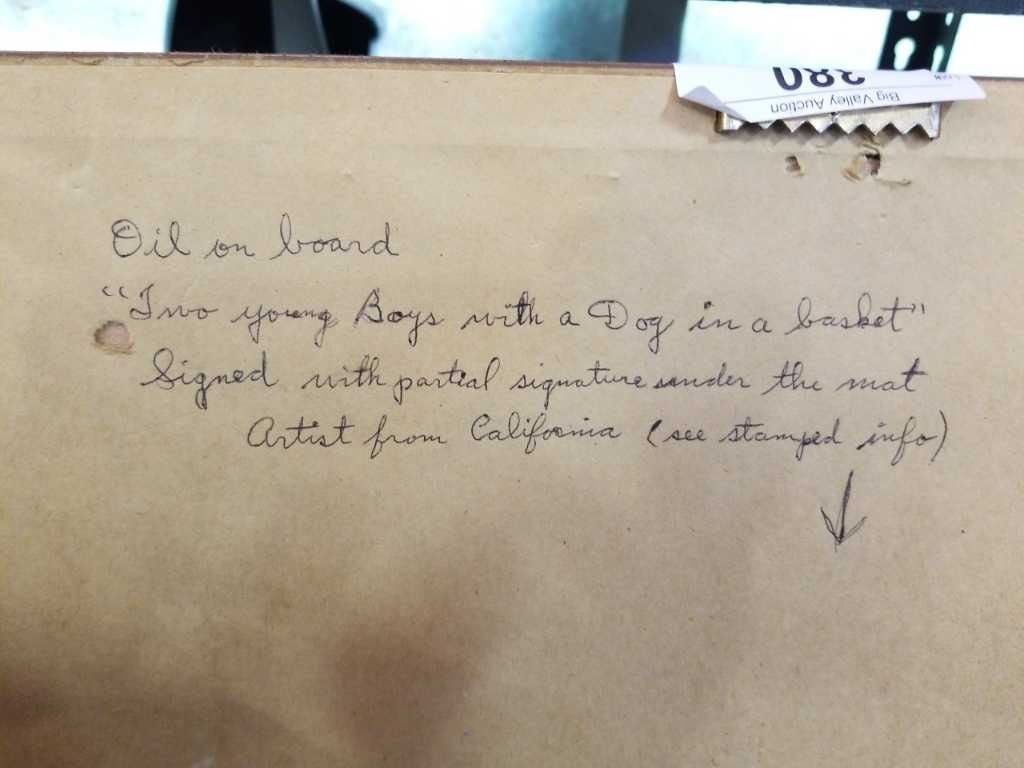 380
Big Valley Auction
Oil on board
"Two young Boys with a Dog in a basket"
Signed with partial signature under the mat
Artist from California (see stamped info)